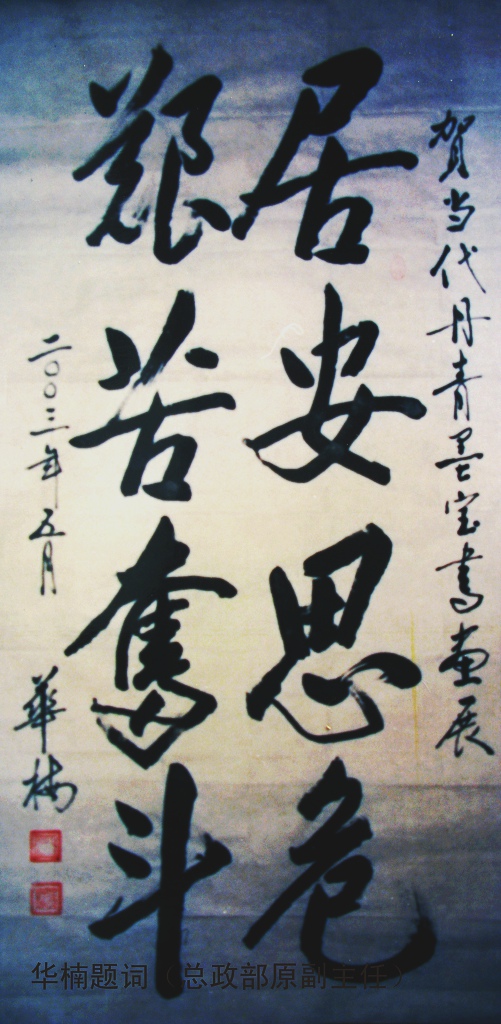 贺当代丹青墨宝书画展
居安思危
艰苦奋斗
二〇〇三年五月
華楠
华楠题词（总政部原副主任）